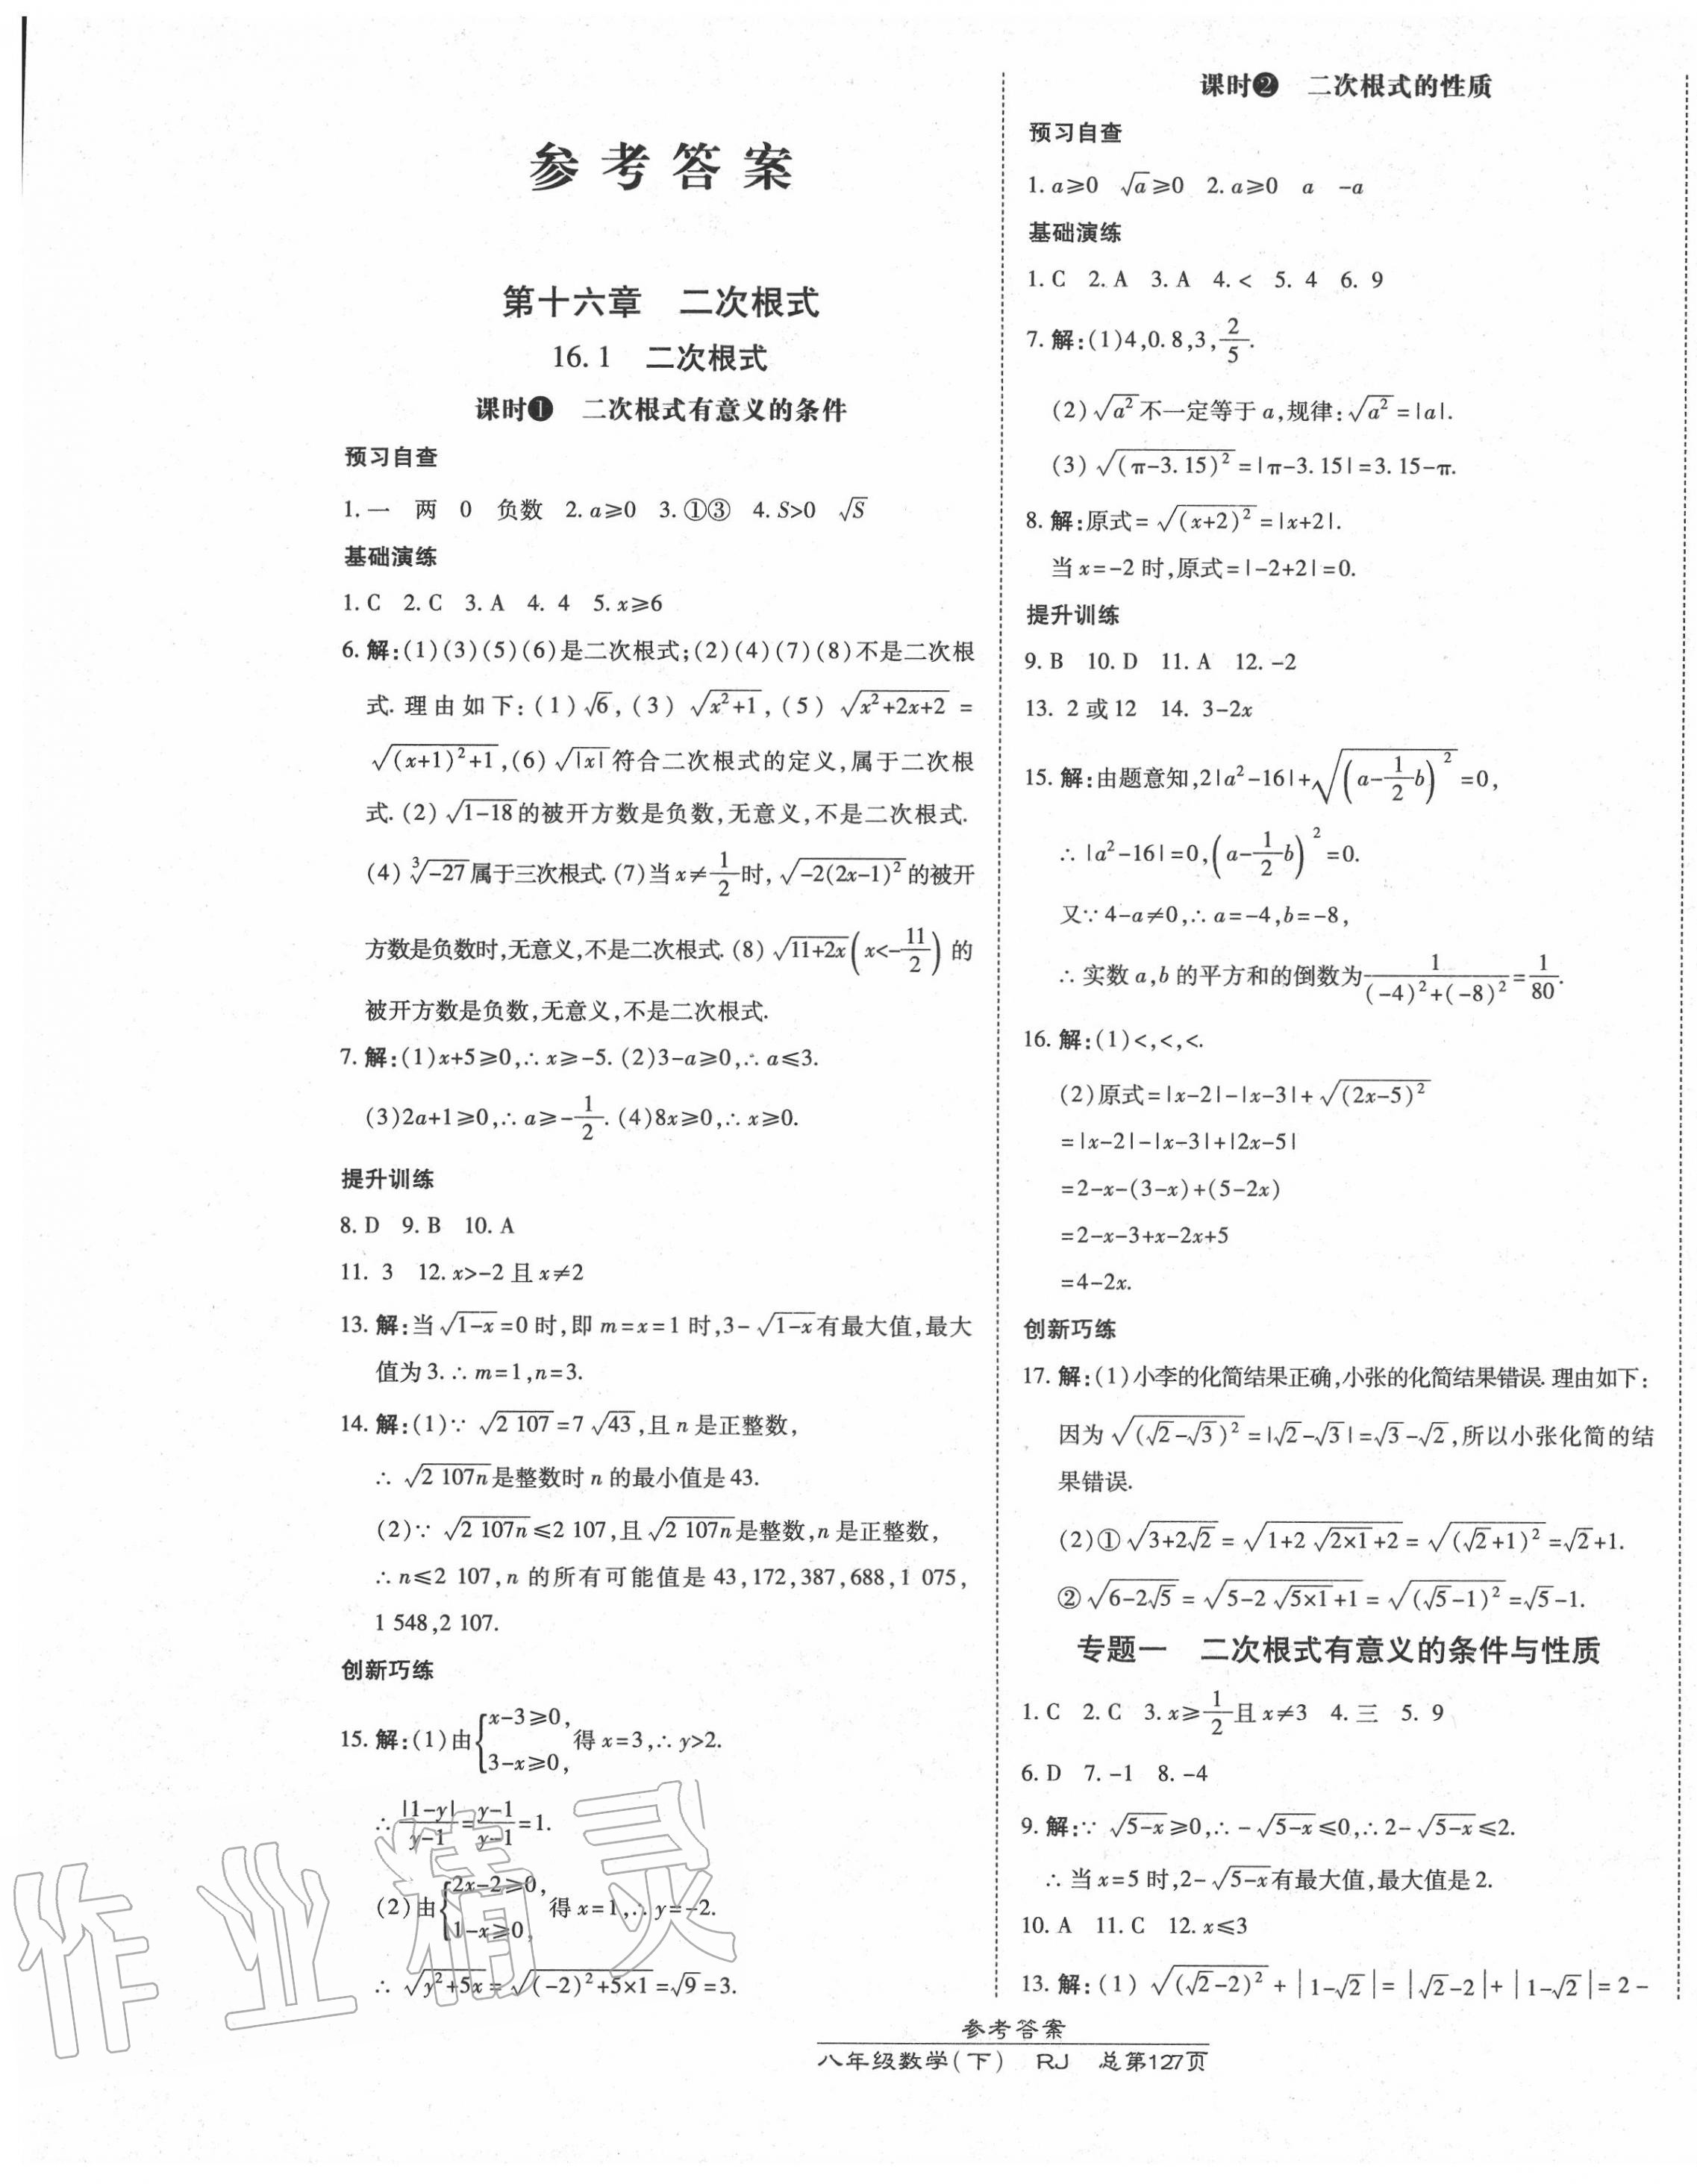 参考答案
第十六章 二次根式
16.1 二次根式
课时❶ 二次根式有意义的条件
预习自查
1.一 两 0 负数 2.a≥0 3.①③ 4.S>0 √S
基础演练
1.C 2.C 3.A 4. 4 5.x≥6
6.解:(1)(3)(5)(6)是二次根式;(2)(4)(7)(8)不是二次根
式.理由如下:(1)√6,(3)√(x²+1),(5)√(x²+2x+2)=
√((x+1)²+1),(6)√|x|符合二次根式的定义,属于二次根
式.(2)√(1-18)的被开方数是负数,无意义,不是二次根式.
(4)∛(-27)属于三次根式.(7)当x≠1/2时,√(-2(2x-1)²)的被开
方数是负数时,无意义,不是二次根式.(8)√(11+2x)(x<-11/2)的
被开方数是负数,无意义,不是二次根式.
7.解:(1)x+5≥0,∴x≥-5.(2)3-a≥0,∴a≤3.
(3)2a+1≥0,∴a≥-1/2.(4)8x≥0,∴x≥0.
提升训练
8.D 9.B 10.A
11. 3 12.x>-2且x≠2
13.解:当√(1-x)=0时,即m=x=1时,3-√(1-x)有最大值,最大
值为3.∴m=1,n=3.
14.解:(1)∵√(2 107)=7√43,且n是正整数,
∴√(2 107n)是整数时n的最小值是43.
(2)∵√(2 107n)≤2 107,且√(2 107n)是整数,n是正整数,
∴n≤2 107,n的所有可能值是43,172,387,688,1 075,
1 548,2 107.
创新巧练
15.解:(1)由{x-3≥0,3-x≥0,得x=3,∴y>2.
∴|1-y|/(y-1)=(y-1)/(y-1)=1.
(2)由{2x-2≥0,1-x≥0,得x=1,∴y=-2.
∴√(y²+5x)=√((-2)²+5×1)=√9=3.
课时❷ 二次根式的性质
预习自查
1.a≥0 √a≥0 2.a≥0 a -a
基础演练
1.C 2.A 3.A 4.< 5. 4 6. 9
7.解:(1)4,0.8,3,2/5.
(2)√(a²)不一定等于a,规律:√(a²)=|a|.
(3)√((π-3.15)²)=|π-3.15|=3.15-π.
8.解:原式=√((x+2)²)=|x+2|.
当x=-2时,原式=|-2+2|=0.
提升训练
9.B 10.D 11.A 12.-2
13. 2或12 14. 3-2x
15.解:由题意知,2|a²-16|+√((a-1/2b)²)=0,
∴|a²-16|=0,(a-1/2b)²=0.
又∵4-a≠0,∴a=-4,b=-8,
∴实数a,b的平方和的倒数为1/((-4)²+(-8)²)=1/80.
16.解:(1)<,<,<.
(2)原式=|x-2|-|x-3|+√((2x-5)²)
=|x-2|-|x-3|+|2x-5|
=2-x-(3-x)+(5-2x)
=2-x-3+x-2x+5
=4-2x.
创新巧练
17.解:(1)小李的化简结果正确,小张的化简结果错误.理由如下:
因为√((√2-√3)²)=|√2-√3|=√3-√2,所以小张化简的结
果错误.
(2)①√(3+2√2)=√(1+2√(2×1)+2)=√((√2+1)²)=√2+1.
②√(6-2√5)=√(5-2√(5×1)+1)=√((√5-1)²)=√5-1.
专题一 二次根式有意义的条件与性质
1.C 2.C 3.x≥1/2且x≠3 4.三 5. 9
6.D 7.-1 8.-4
9.解:∵√(5-x)≥0,∴-√(5-x)≤0,∴2-√(5-x)≤2.
∴当x=5时,2-√(5-x)有最大值,最大值是2.
10.A 11.C 12.x≤3
13.解:(1)√((√2-2)²)+|1-√2|=|√2-2|+|1-√2|=2-
参考答案
八年级数学(下) RJ 总第127页
作业精灵